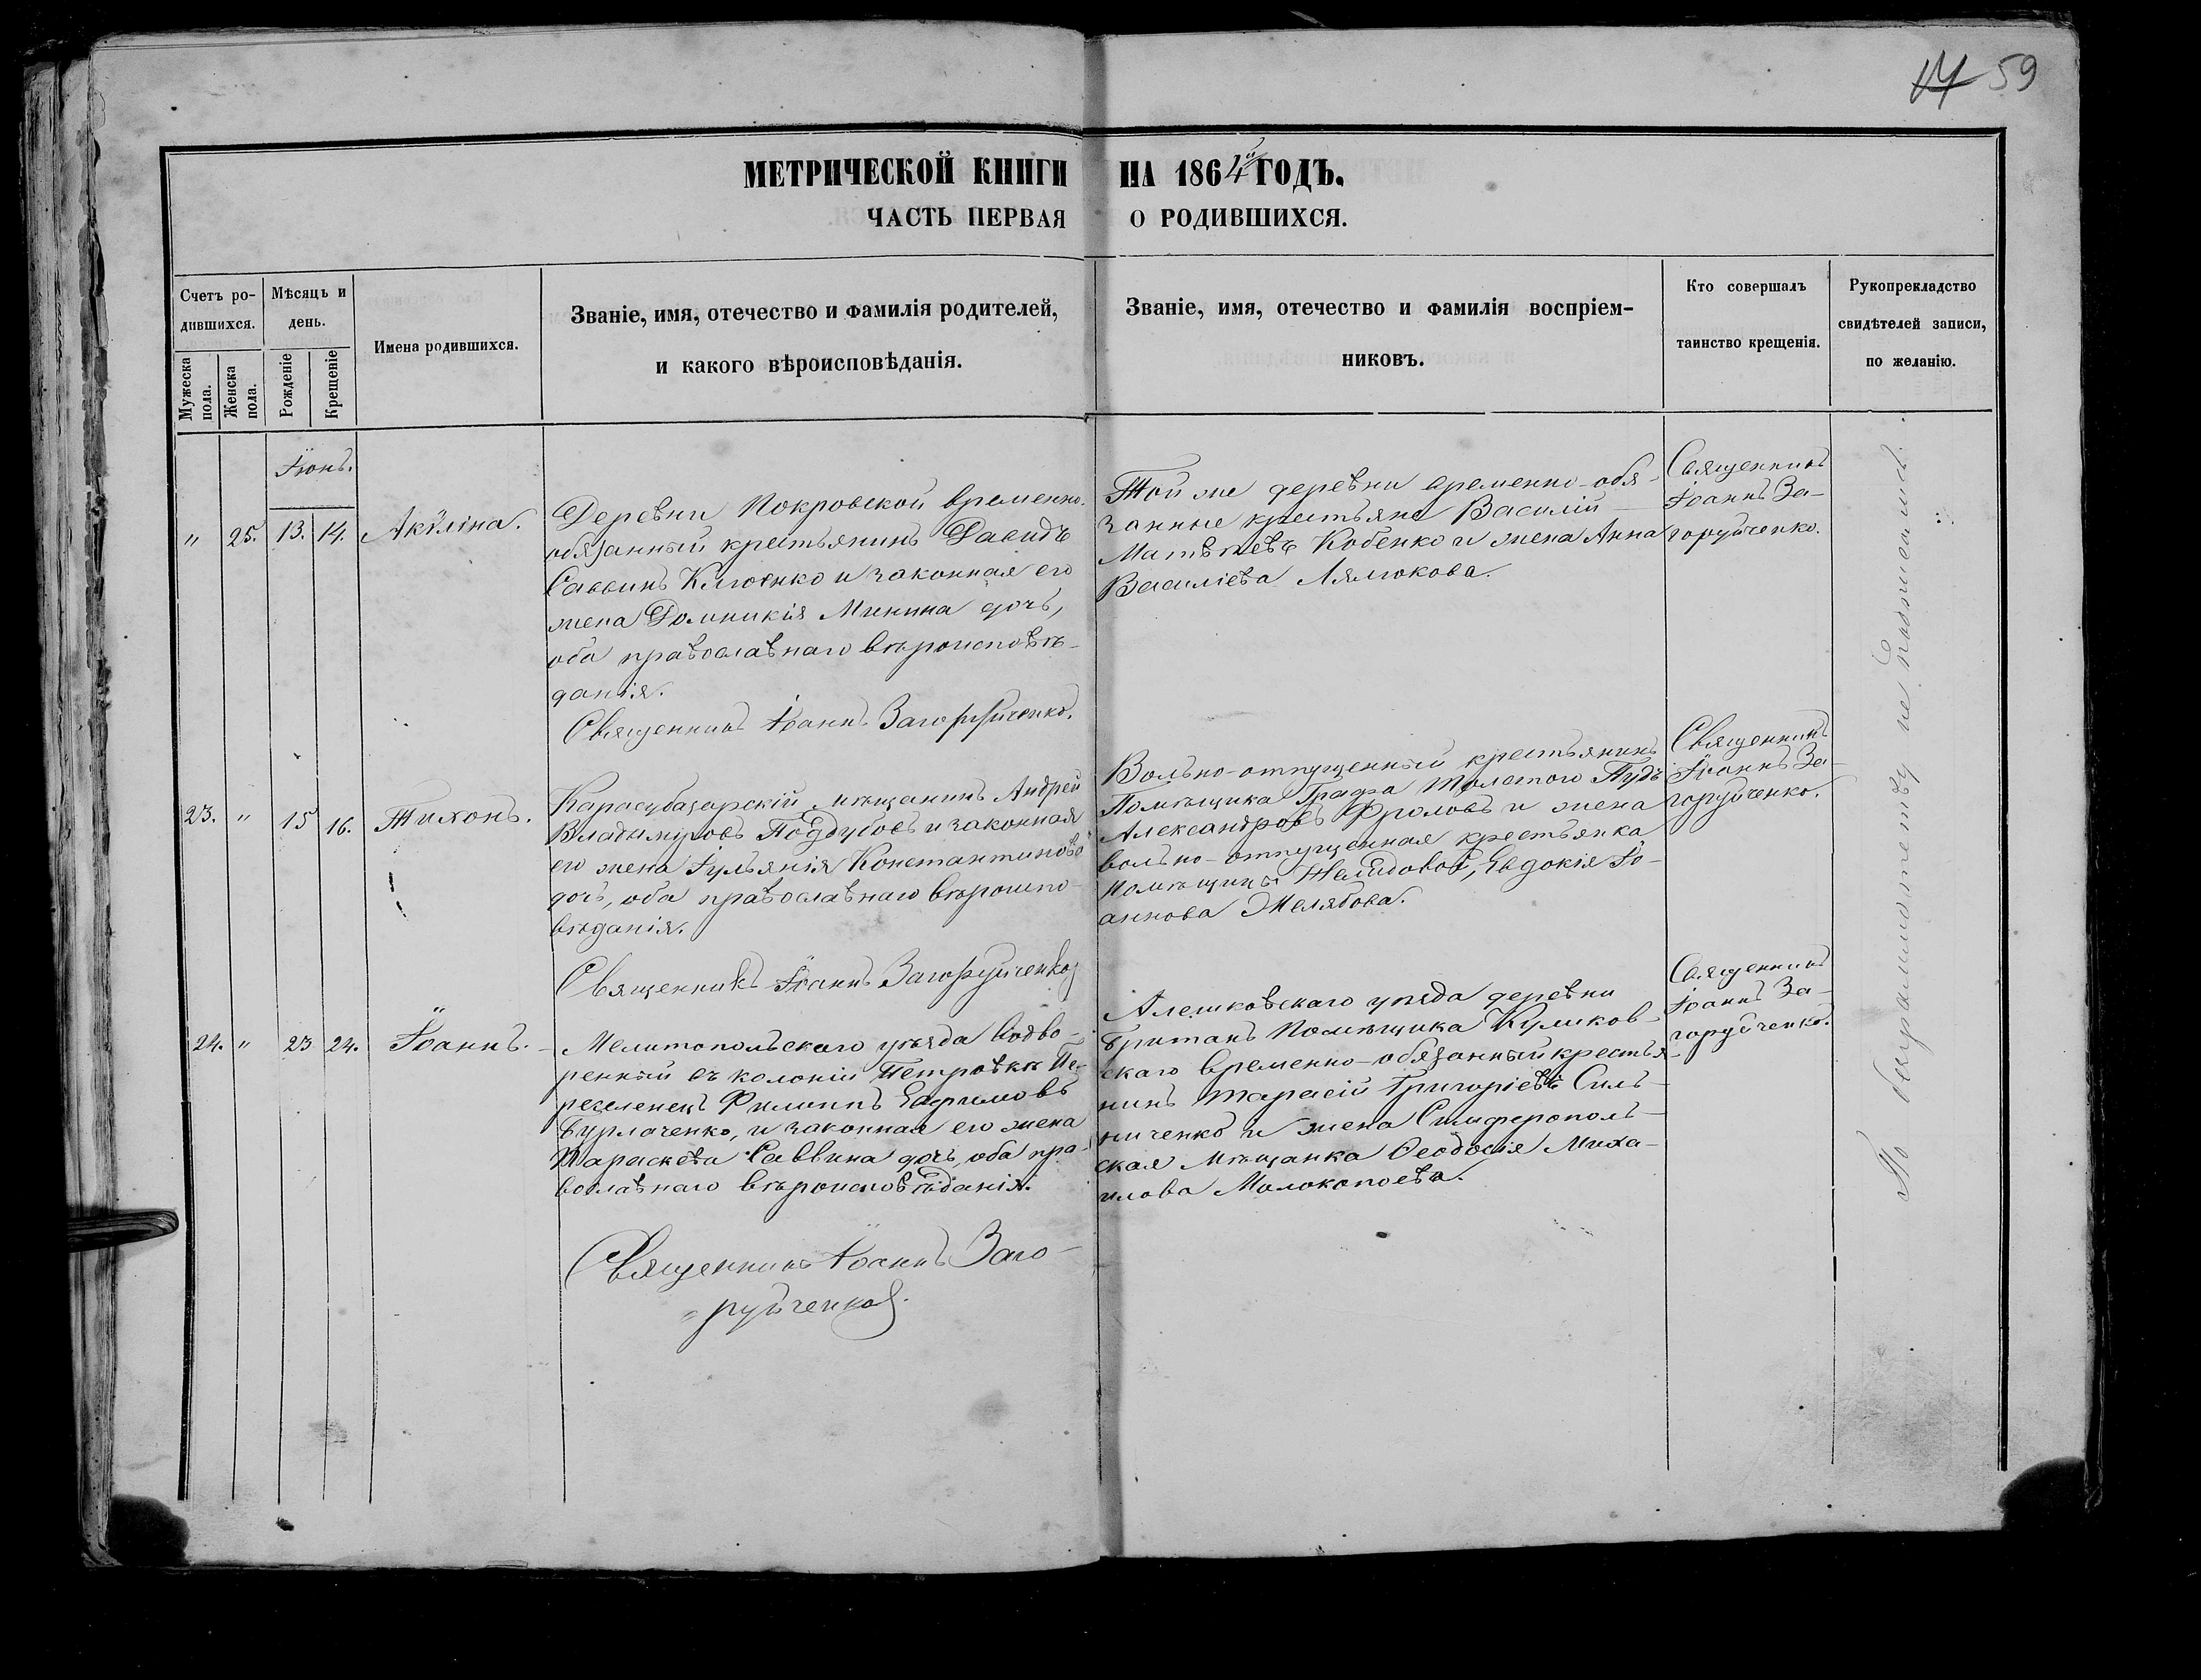 14 59
МЕТРИЧЕСКОЙ КНИГИ НА 1864й ГОДЪ.
ЧАСТЬ ПЕРВАЯ О РОДИВШИХСЯ.
Счетъ ро-
дившихся.
Мужеска
пола.
Женска
пола.
Мѣсяцъ и
день.
Рожденіе
Крещеніе
Имена родившихся.
Званіе, имя, отечество и фамилія родителей,
и какого вѣроисповѣданія.
Званіе, имя, отечество и фамилія воспріем-
никовъ.
Кто совершалъ
таинство крещенія.
Рукоприкладство
свидѣтелей записи,
по желанію.
Іюнь.
" 25. 13. 14. Акѵлина.
Деревни Покровской временно-
обязанный крестьянинъ Давидъ
Саввинъ Клюенко и законная его
жена Домникія Минина дочь,
оба православнаго вѣроисповѣ-
данія.
Священникъ Іоаннъ Загоруйченко.
Той же деревни временно-обя-
занные крестьяне Василій
Матвѣевъ Кобенко и жена Анна
Василіева Лямокова.
Священникъ
Іоаннъ За-
горуйченко.
23. " 15 16. Тихонъ.
Карасубазарскій мѣщанинъ Андрей
Владиміровъ Поддубовъ и законная
его жена Іульянія Константинова
дочь, оба православнаго вѣроиспо-
вѣданія.
Священникъ Іоаннъ Загоруйченко
Вольно-отпущенный крестьянинъ
Помѣщика Графа Толстого Пудъ
Александровъ Фроловъ и жена
вольно-отпущенная крестьянка
помѣщицы Евдокія Іо-
аннова Желябова.
Священникъ
Іоаннъ За-
горуйченко.
24. " 23 24. Іоаннъ.
Мелитопольскаго уѣзда водво-
ренный въ колоніи Петровкѣ Пе-
реселенецъ Филиппъ Евфимовъ
Бурлаченко, и законная его жена
Параскева Саввина дочь, оба пра-
вославнаго вѣроисповѣданія.
Священникъ Іоаннъ Заго-
руйченко.
Алешковскаго уѣзда деревни
Британъ помѣщика Куликов-
скаго временно-обязанный крестья-
нинъ Тарасій Григоріевъ Силь-
ниченко и жена Симферополь-
ская мѣщанка Ѳеодосія Миха-
илова Молоконоева.
Священникъ
Іоаннъ За-
горуйченко.
По безграмотству не росписались.